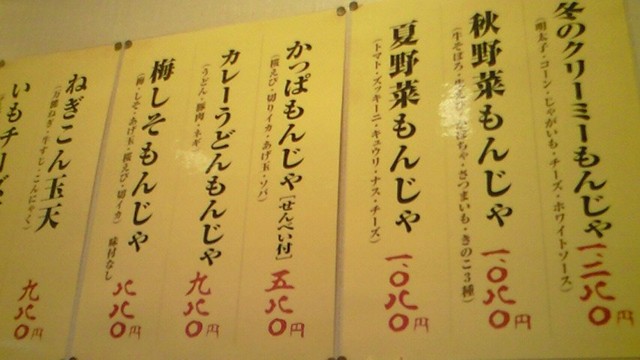 冬のクリーミーもんじゃ
(明太子・コーン・じゃがいも・チーズ・ホワイトソース)
一、二八〇円
秋野菜もんじゃ
(牛そぼろ・かぼちゃ・さつまいも・きのこ3種)
一、〇八〇円
夏野菜もんじゃ
(トマト・ズッキーニ・キュウリ・ナス・チーズ)
一、〇八〇円
かっぱもんじゃ[せんべい付]
(桜えび・切りイカ・あげ玉・ソバ)
五八〇円
カレーうどんもんじゃ
(うどん・豚肉・ネギ)
九八〇円
梅しそもんじゃ
(梅・しそ・あげ玉・桜えび・切イカ) 味付なし
八八〇円
ねぎこん玉天
(万能ねぎ・牛すじ・こんにゃく)
九八〇円
いもチーズ